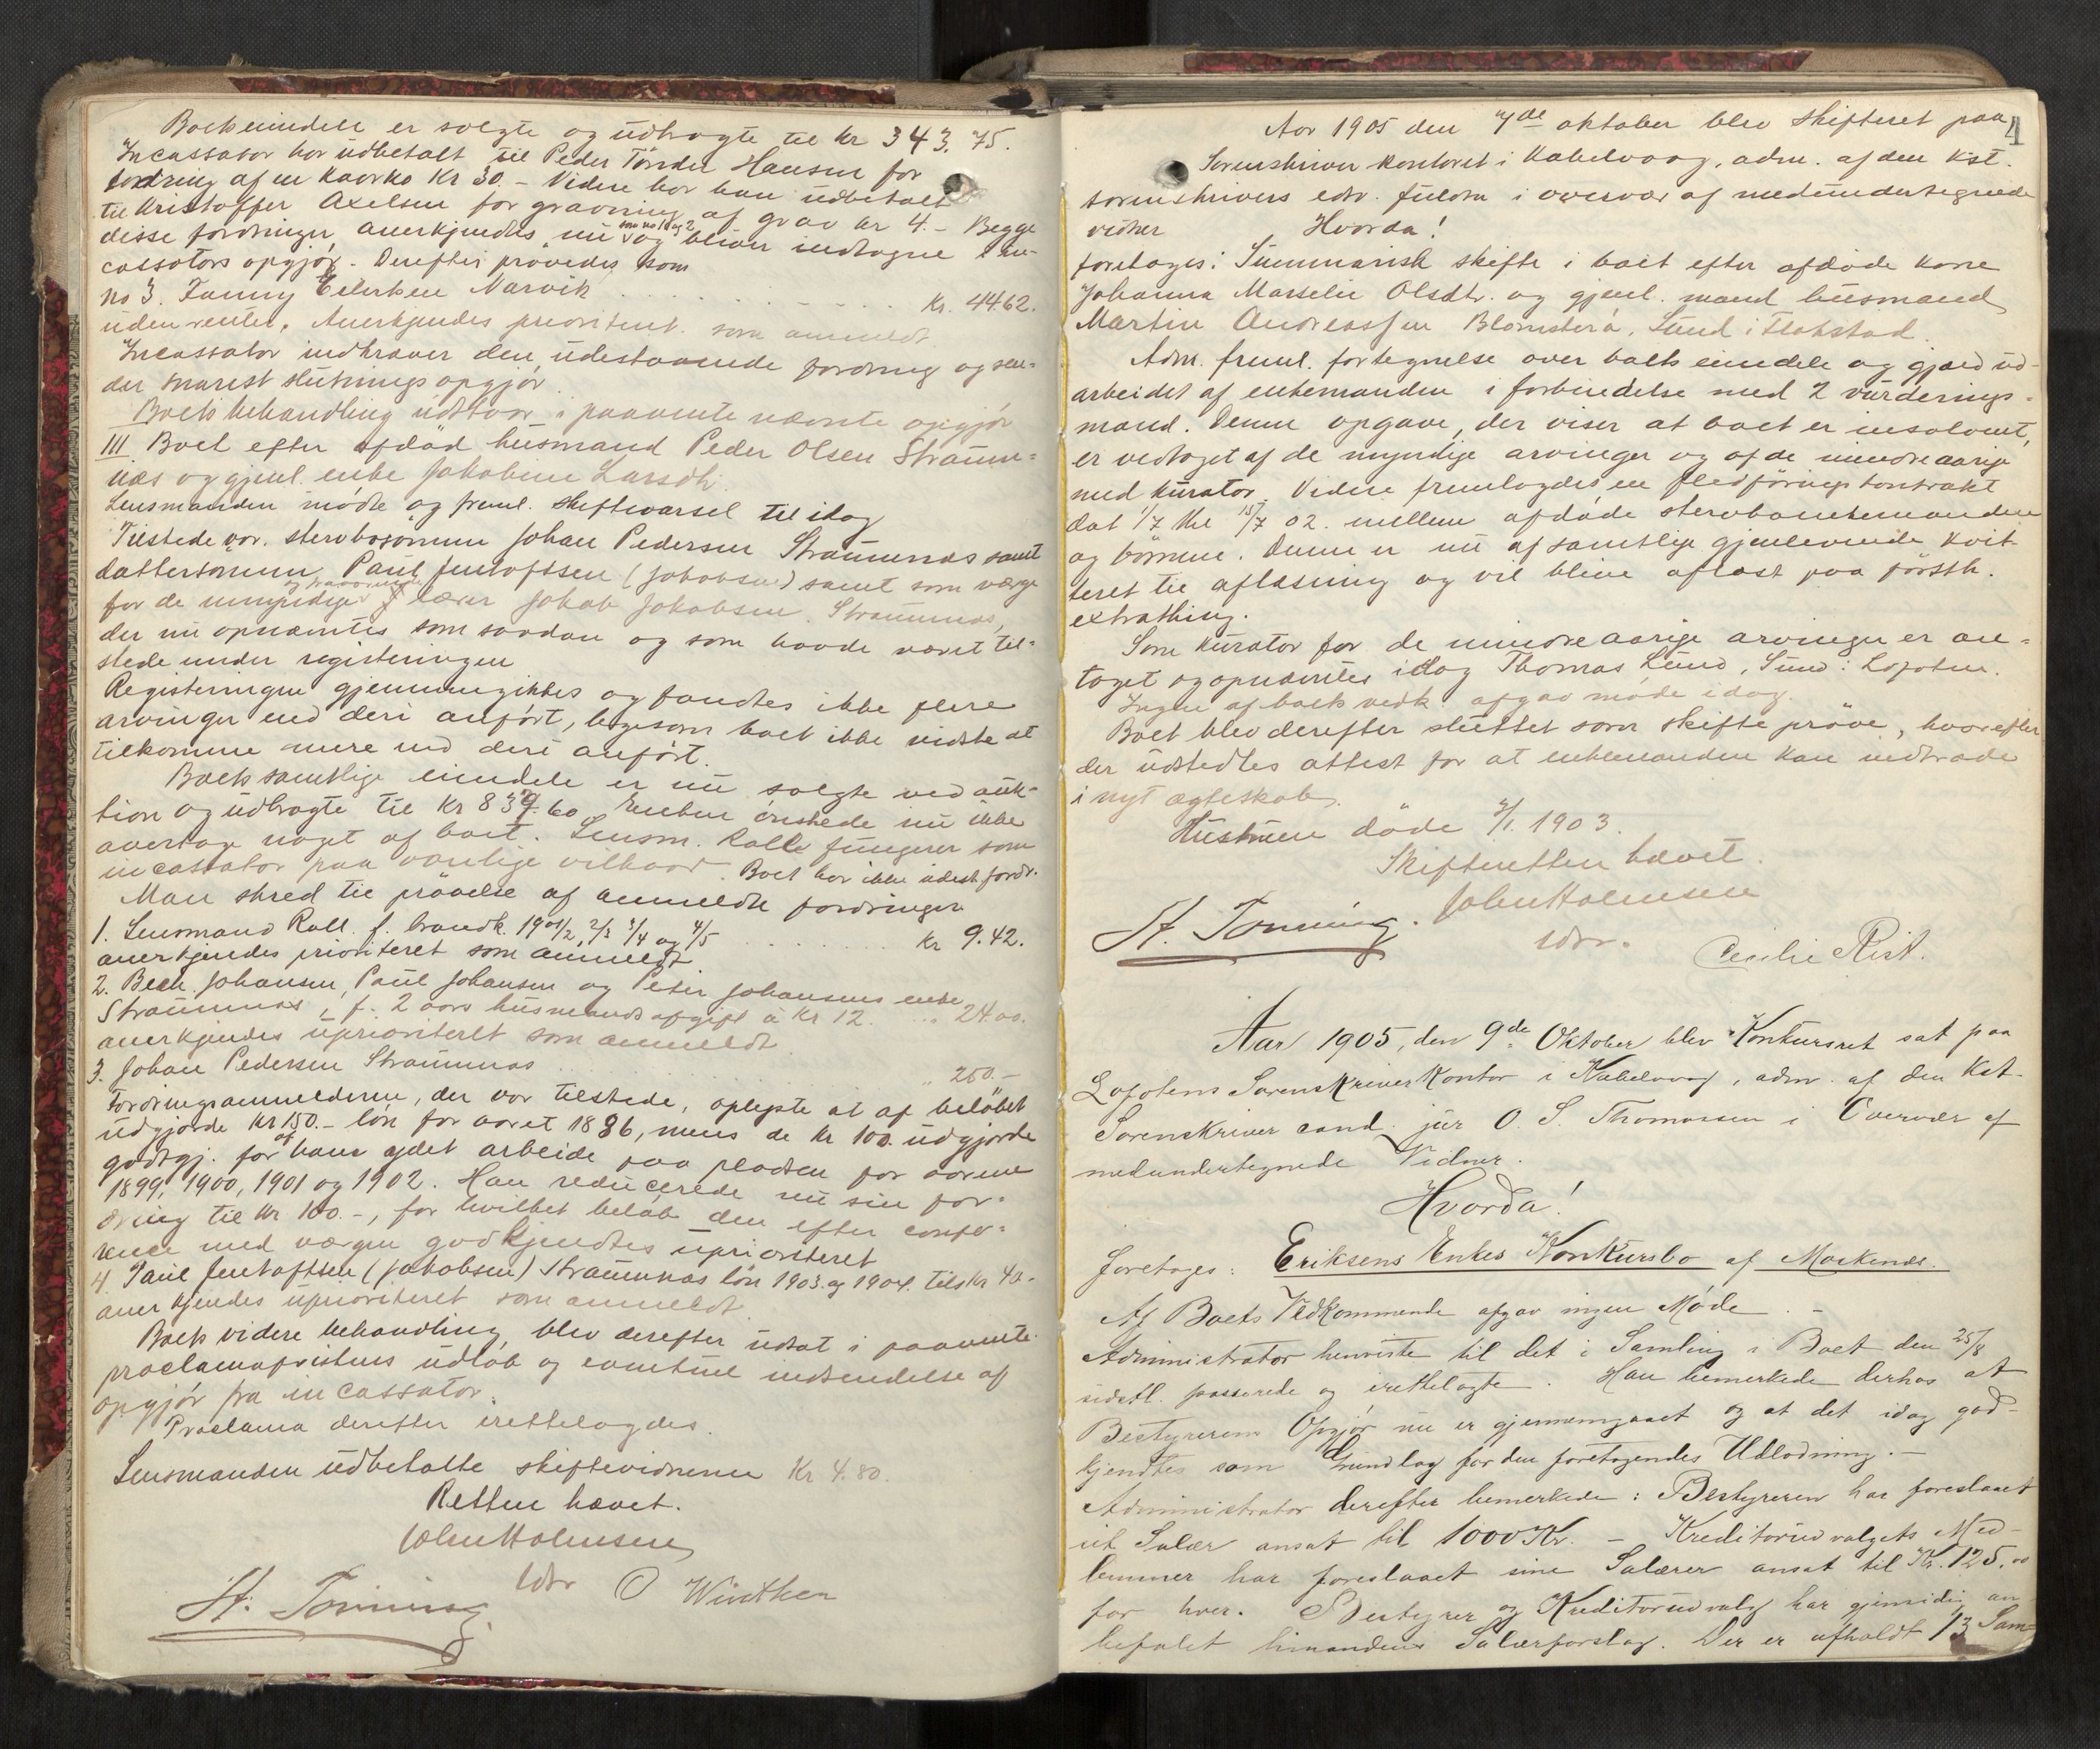 Boets eiendele er solgte og udbragte til kr 343.75.
Incassator har udbetalt til Peder Tönder Hansen for
fordring af en kaarka Kr 30.- Videre har han udbetalt
til Kristoffer Axelsen for gravning af grav kr 4.- Begge
disse fordringer anerkjendtes nu som no 1 og 2 og bliver indtagne i in-
cassators opgjör. Derefter prövedes som
no 3. Fanny Ellerksen Narvik . . . . kr. 44.62.
uden renter. Anerkjendes prioritert som anmeldt
Incassator indkraver den udestaaende fordring og sen-
der snarest slutningsopgjör.
Boets behandling udstaar i paavente nævnte opgjör
III Boet efter afdöd husmand Peder Olsen Straum-
nes og gjenl. enke Jakobine Larsdtr.
Lensmanden mödte og freml. skiftevarsel til idag
Tilstede var. stervbosönnen Johan Pedersen Straumnes samt
dattersönnen Paul Jentoftsen (Jakobsen) samt som værge
for de umyndige og fraværende lærer Jakob Jakobsen. Straumnes,
der nu opnævntes som saadan og som havde været til-
stede under registeringen
Registeringen gjennemgikkes og fandtes ikke flere
arvinger end deri anfört, ligesom boet ikke vidste at
tilkomme mere end deri anfört.
Boets samtlige eiendele er nu solgte ved auk-
tion og udbragte til Kr 839.60 Enken önskede nu ikke
overtage noget af boet. Lensm. Rall fungerer som
incassator paa vanlige vilkaar. Boet har ikke udest. fordr.
Man skred til prövelse af anmeldte fordringer
1. Lensmand Rall. f. brandk. 1901/2, 2/3 3/4 og 4/5 . . . . kr 9.42.
anerkjendes prioriteret som anmeldt
2. Bech. Johansen, Paul Johansen og Peter Johansens enke
Straumnes, f. 2 aars husmandsafgift à Kr 12. ... 24.00.
anerkjendes uprioriteret som anmeldt
3. Johan Pedersen Straumnes . . . . " 250.-
Fordringsanmelderen, der var tilstede, oplyste at af belöbet
udgjorde kr 150.- lön for aaret 1886, mens de kr 100. udgjorde
godtgj. for af ham ydet arbeide paa pladsen for aarene
1899, 1900, 1901 og 1902. Han reducerede nu sin for-
dring til kr 100.-, for hvilket belöb den efter confe-
rence med værgen godkjendtes uprioriteret
4. Paul Jentoftsen (Jakobsen) Straumnes lön 1903 og 1904. tils kr 40.-
anerkjendes uprioriteret som anmeldt
Boets videre behandling blev derefter udsat i paavente
proclamafristens udlöb og eventuel indsendelse af
opgjör fra incassator.
Proclama derefter irettelagdes.
Lensmanden udbetalte skiftevidnerne Kr 4.80.
Retten hævet.
John Holmsen
edsv
St. Tönning. O Winther
1
Aar 1905 den 7de oktober blev skifteret paa
Sorenskriverkontoret i Kabelvaag, adm. af den kst.
sorenskrivers edsv. fuldm i overvær af medundertegnede
vidner Hvorda!
foretages: Summarisk skifte i boet efter afdöde kone
Johanna Marselie Olsdtr. og gjenl. mand husmand
Martin Andreassen Blomster, Sund i Flakstad.
Adm. freml. fortegnelse over boets eiendele og gjæld ud-
arbeidet af enkemanden i forbindelse med 2 vurderings-
mænd. Denne opgave, der viser at boet er insolvent,
er vedtaget af de myndige arvinger og af de mindreaarige
med kurator. Videre fremlagdes en fledföringskontrakt
dat 1/7 thl 15/7 02. mellem afdöde stervboenkemanden
og börnene. Denne er nu af samtlige gjenlevende kvit-
teret til aflæsning og vil blive aflæst paa förstk.
extrathing.
Som kurator for de mindreaarige arvinger er an-
taget og opnævntes idag Thomas Lund, Sund i Lofoten.
Ingen af boets vedk. afgav möde idag.
Boet blev derefter sluttet som skifte pröve, hvorefter
der udstedtes attest for at enkemanden kan indtræde
i nyt ægteskab.
Hustruen döde 4/1. 1903.
Skifteretten hævet.
John Holmsen
edsv.
St. Tönning. Cecilie Rist.
Aar 1905, den 9de Oktober blev Konkursret sat paa
Lofotens Sorenskriverkontor i Kabelvaag, adm. af den Kst.
Sorenskriver cand. jur O. S. Thomassen i Overvær af
medundertegnede Vidner.
Hvorda!
foretages: Eriksens Enkes Konkursbo af Moskenes.
Af Boets Vedkommende afgav ingen Möde.-
Administrator henviste til det i Samling i Boet den 25/8
sidstl. passerede og irettelagte. Han bemerkede derhos at
Bestyrerens Opgjör nu er gjennemgaaet og at det idag god-
kjendtes som Grundlag for den foretagendes Udlodning.-
Administrator derefter bemerkede: Bestyreren har foreslaaet
sit Salær ansat til 1000 Kr. - Kreditorudvalgets Med-
lemmer har foreslaaet sine Salærer ansat til Kr. 125.00
for hver. Bestyrer og Kreditorudvalg har gjensidig an-
befalet hinandens Salærforslag. Der er afholdt 13 Sam-